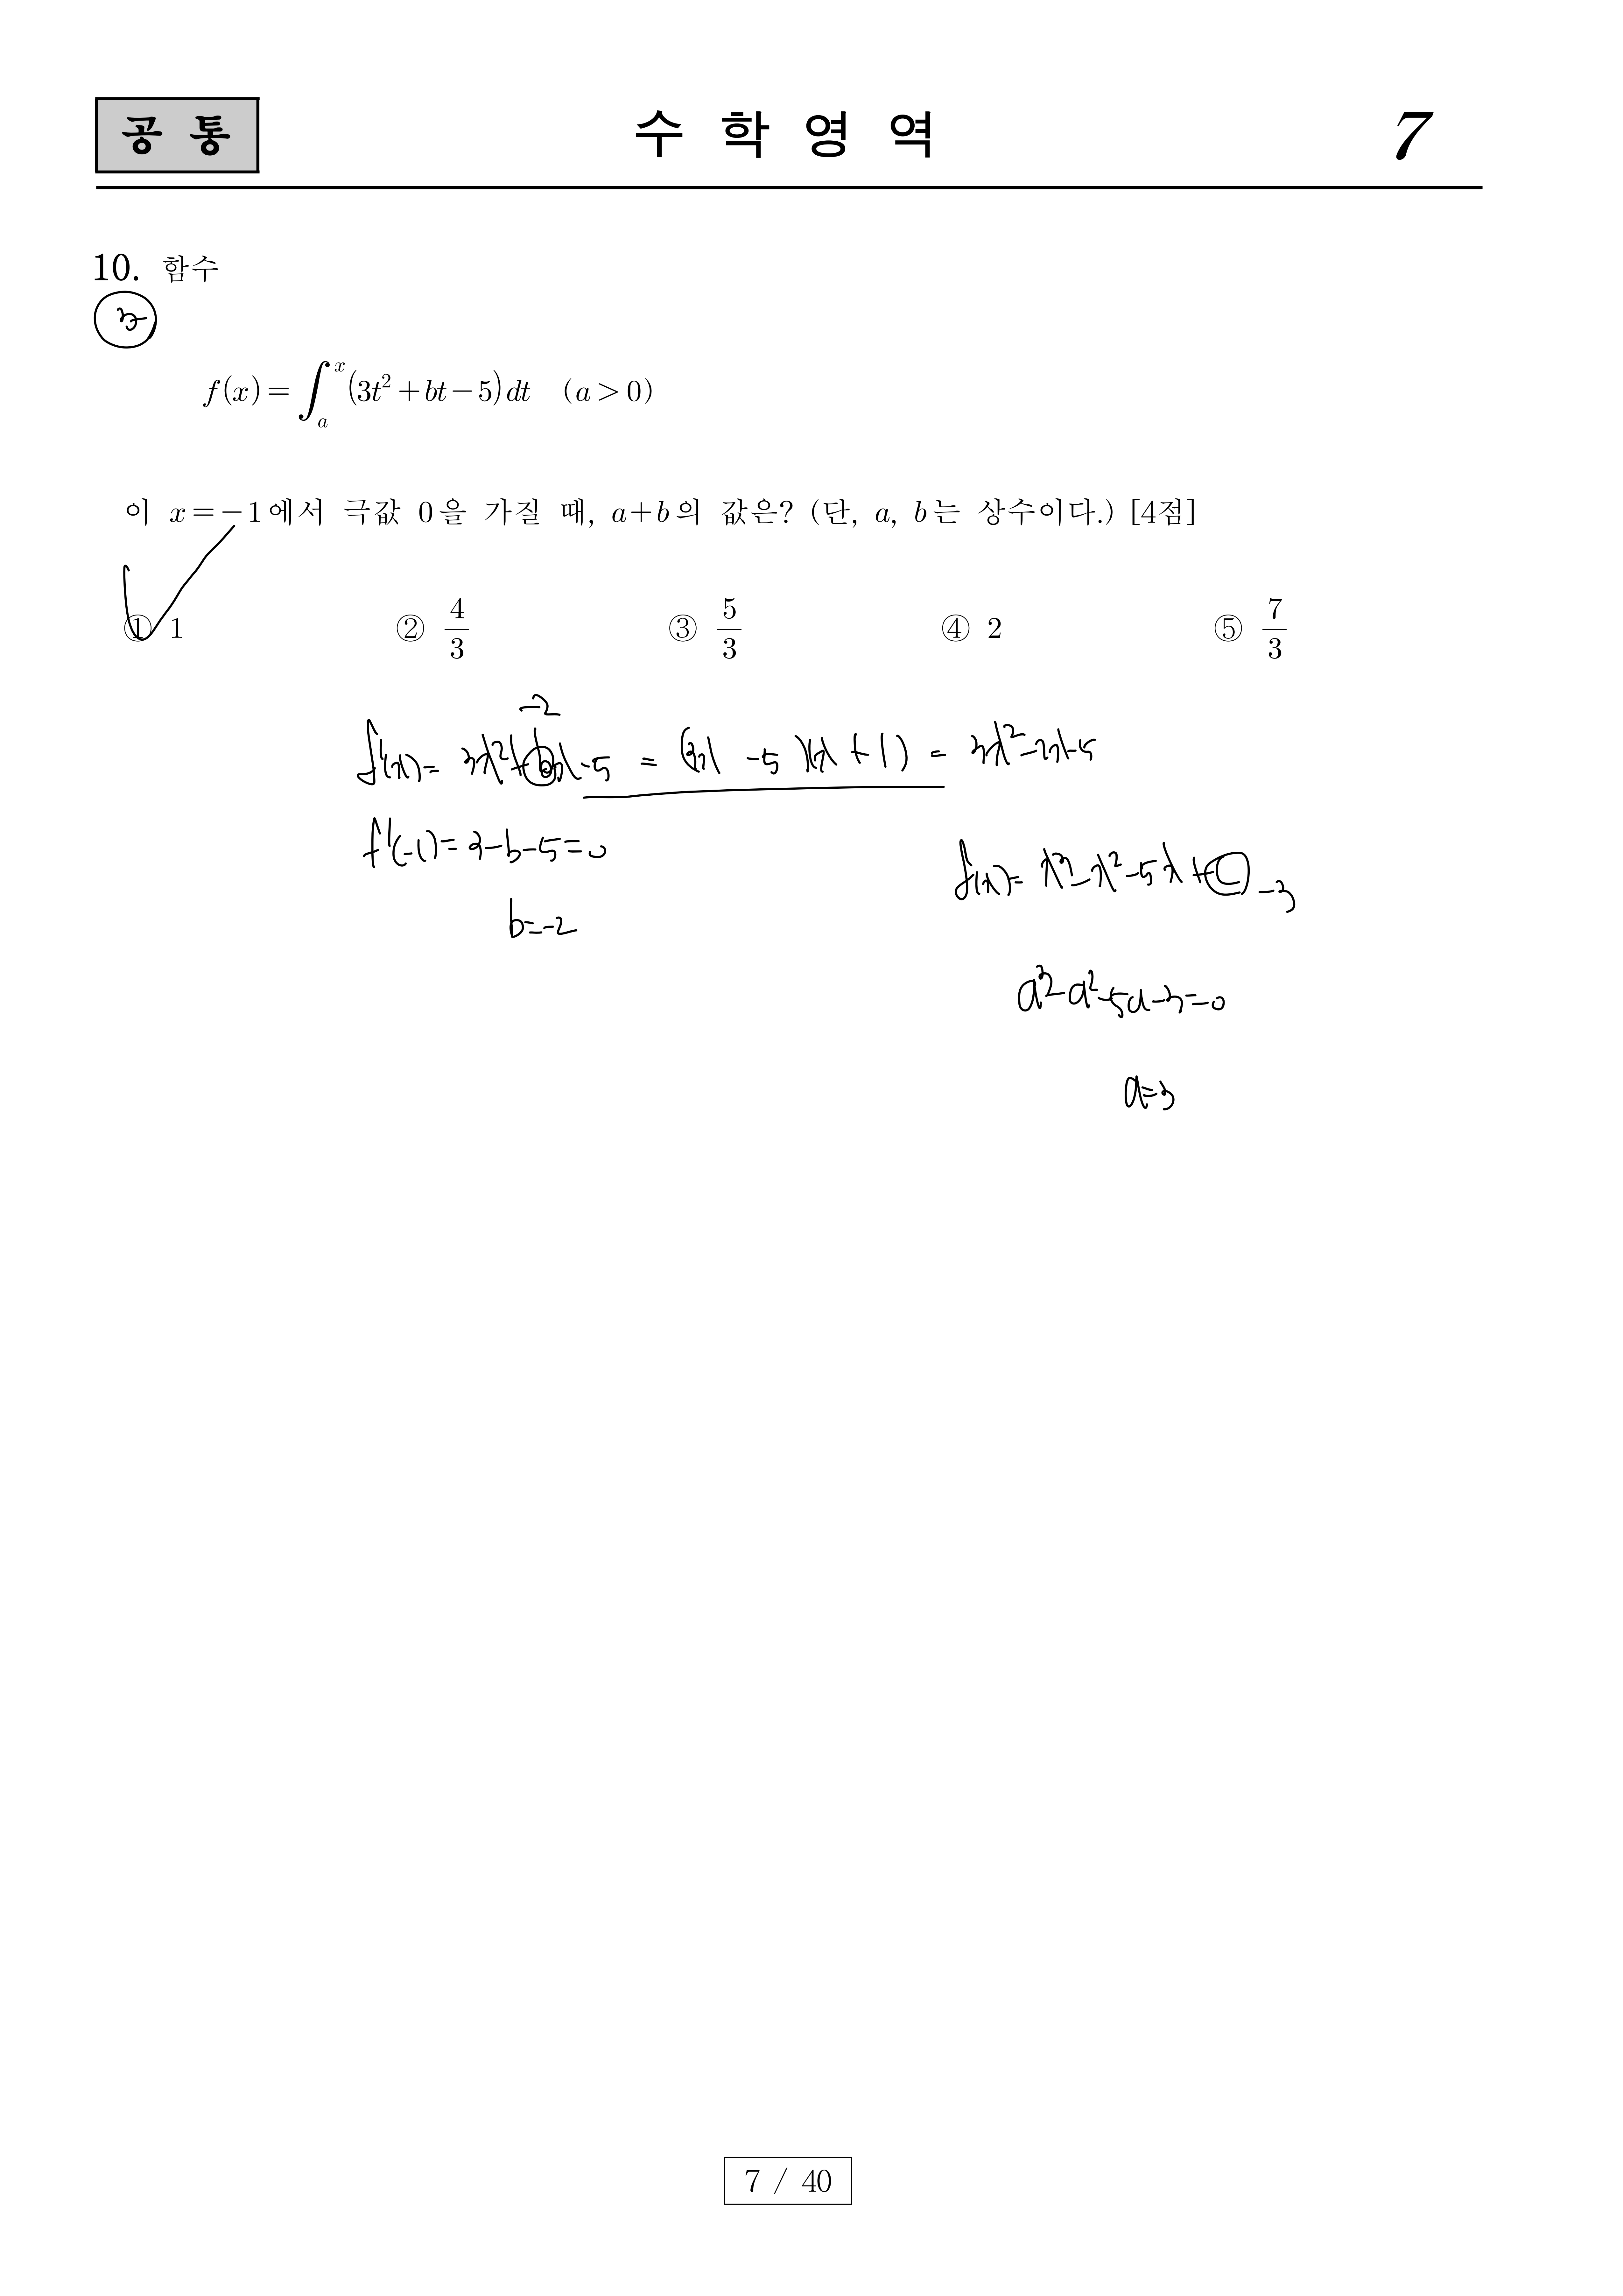 공통 수학영역 7
10. 함수
3
f(x) = ∫_a^x (3t² + bt − 5) dt (a > 0)
이 x = −1에서 극값 0을 가질 때, a+b의 값은? (단, a, b는 상수이다.) [4점]
① 1 ② 4/3 ③ 5/3 ④ 2 ⑤ 7/3
−2
f'(x) = 3x² + bx − 5 = (3x − 5)(x + 1) = 3x² − 2x − 5
f'(−1) = 3 − b − 5 = 0
f(x) = x³ − x² − 5x + C −3
b = −2
a³ − a² − 5a − 3 = 0
a = 3
7 / 40